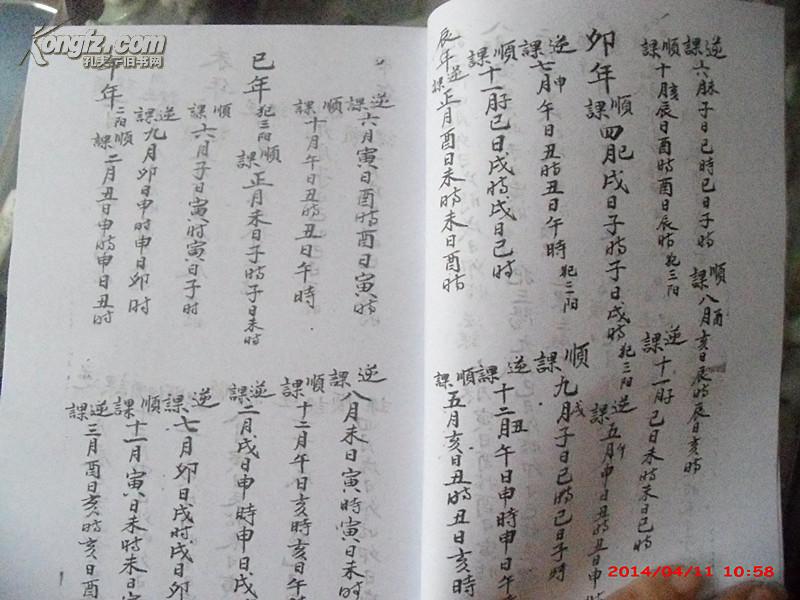 逆課六月未子日巳時巳日子時
順課八月酉亥日辰時辰日亥時
順課十月亥辰日酉時酉日辰時犯三阳
逆課十一月子巳日未時未日巳時
卯年順課四月巳戌日子時子日戌時犯三阳
逆課五月午申日丑時丑日申
逆課七月申午日丑時丑日午時犯二阳
順課九月戌子日巳時巳日子時
順課十一月子巳日戌時戌日巳時
逆課十二月丑午日申時申日午
辰年逆課正月酉日未時未日酉時
順課五月亥日丑時丑日亥時
逆課六月寅日酉時酉日寅時
逆課八月未日寅時寅日未時
順課十月午日丑時丑日午時
順課十二月午日亥時亥日午
巳年犯三阳順課正月未日子時子日未時
逆課二月戌日申時申日戌
順課六月子日寅時寅日子时
逆課七月卯日戌時戌日卯
逆課九月卯日申時申日卯时
順課十一月寅日未時未日寅
年二阳順課二月丑日申時申日丑时
逆課三月酉日亥時亥日酉
Kongfz.com
孔夫子旧书网
2014/04/11 10:58